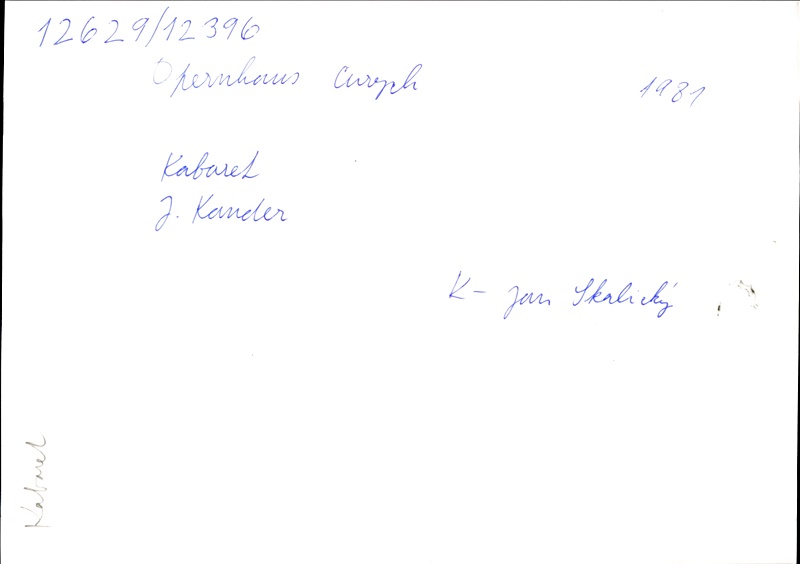 12629/12396
Opernhaus Curych
1981
Kabaret
J. Kander
K - Jan Skalický
Kabaret